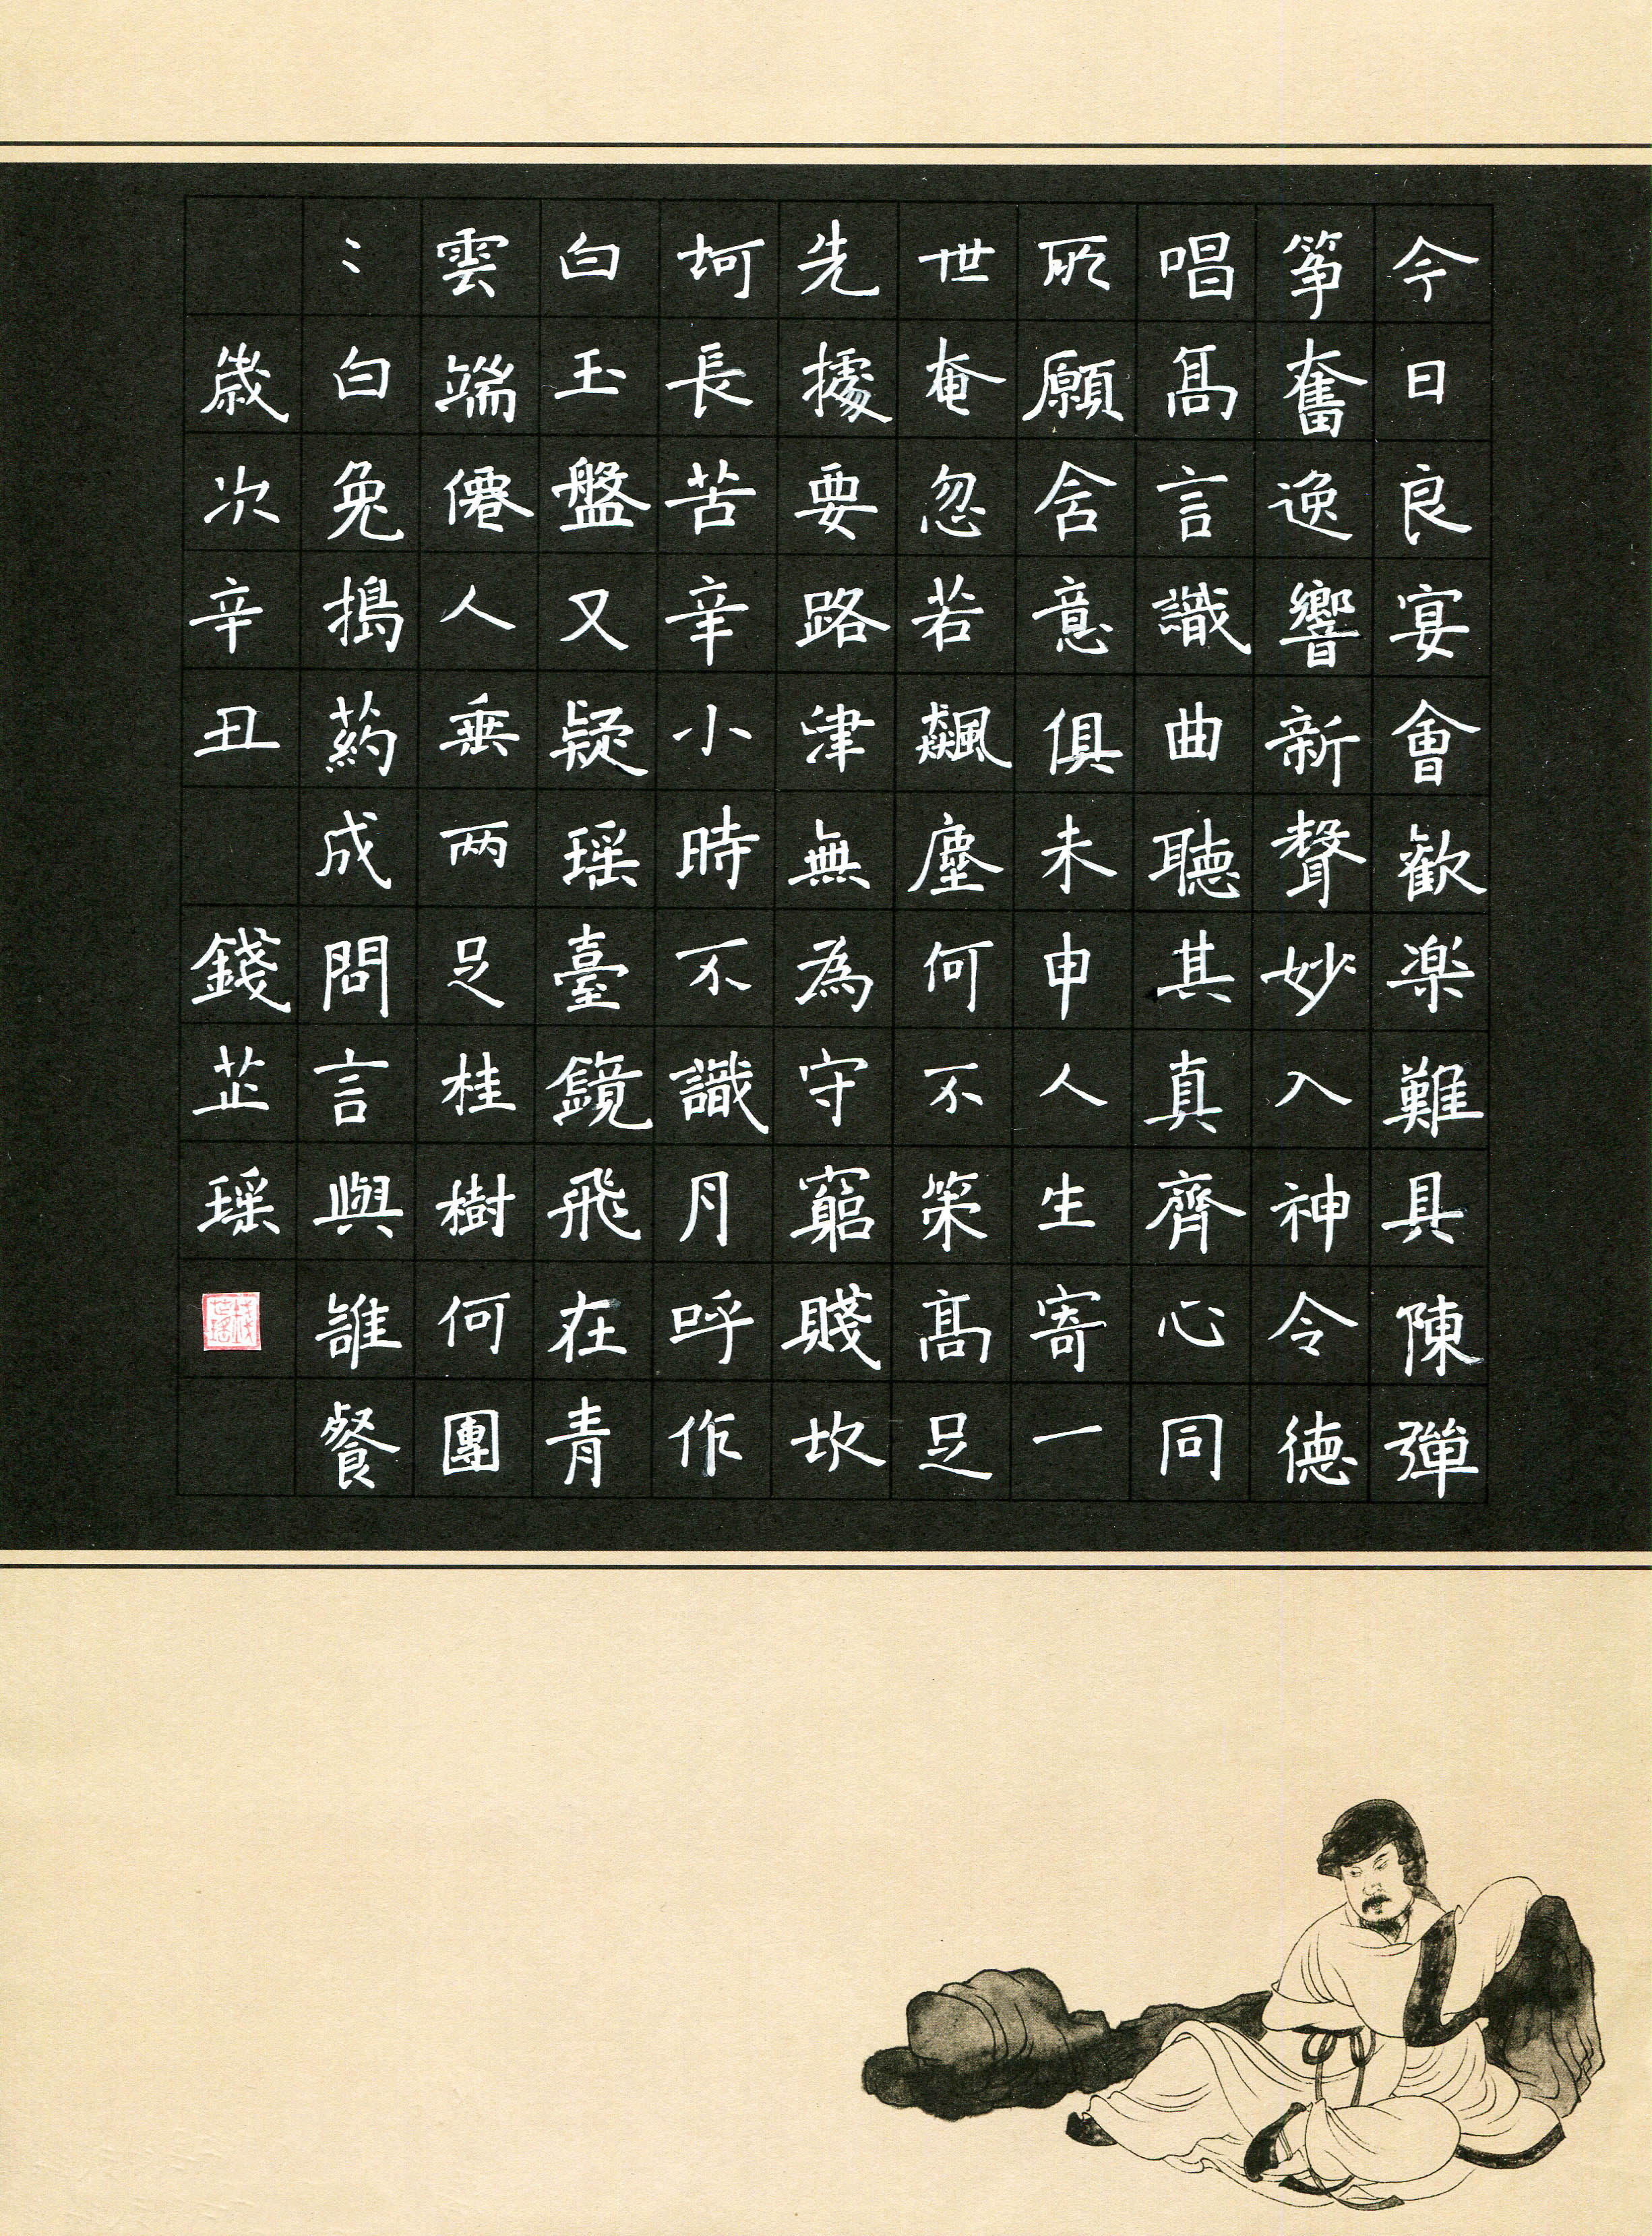 今日良宴會歡楽難具陳彈
筝奮逸響新聲妙入神令德
唱髙言識曲聽其真齊心同
所願含意俱未申人生寄一
世奄忽若飆塵何不策髙足
先據要路津無為守窮賤坎
坷長苦辛小時不識月呼作
白玉盤又疑瑶臺鏡飛在青
雲端僊人垂两足桂樹何團
〻白兔搗葯成問言與誰餐
歲次辛丑 錢芷瑶
錢芷瑶